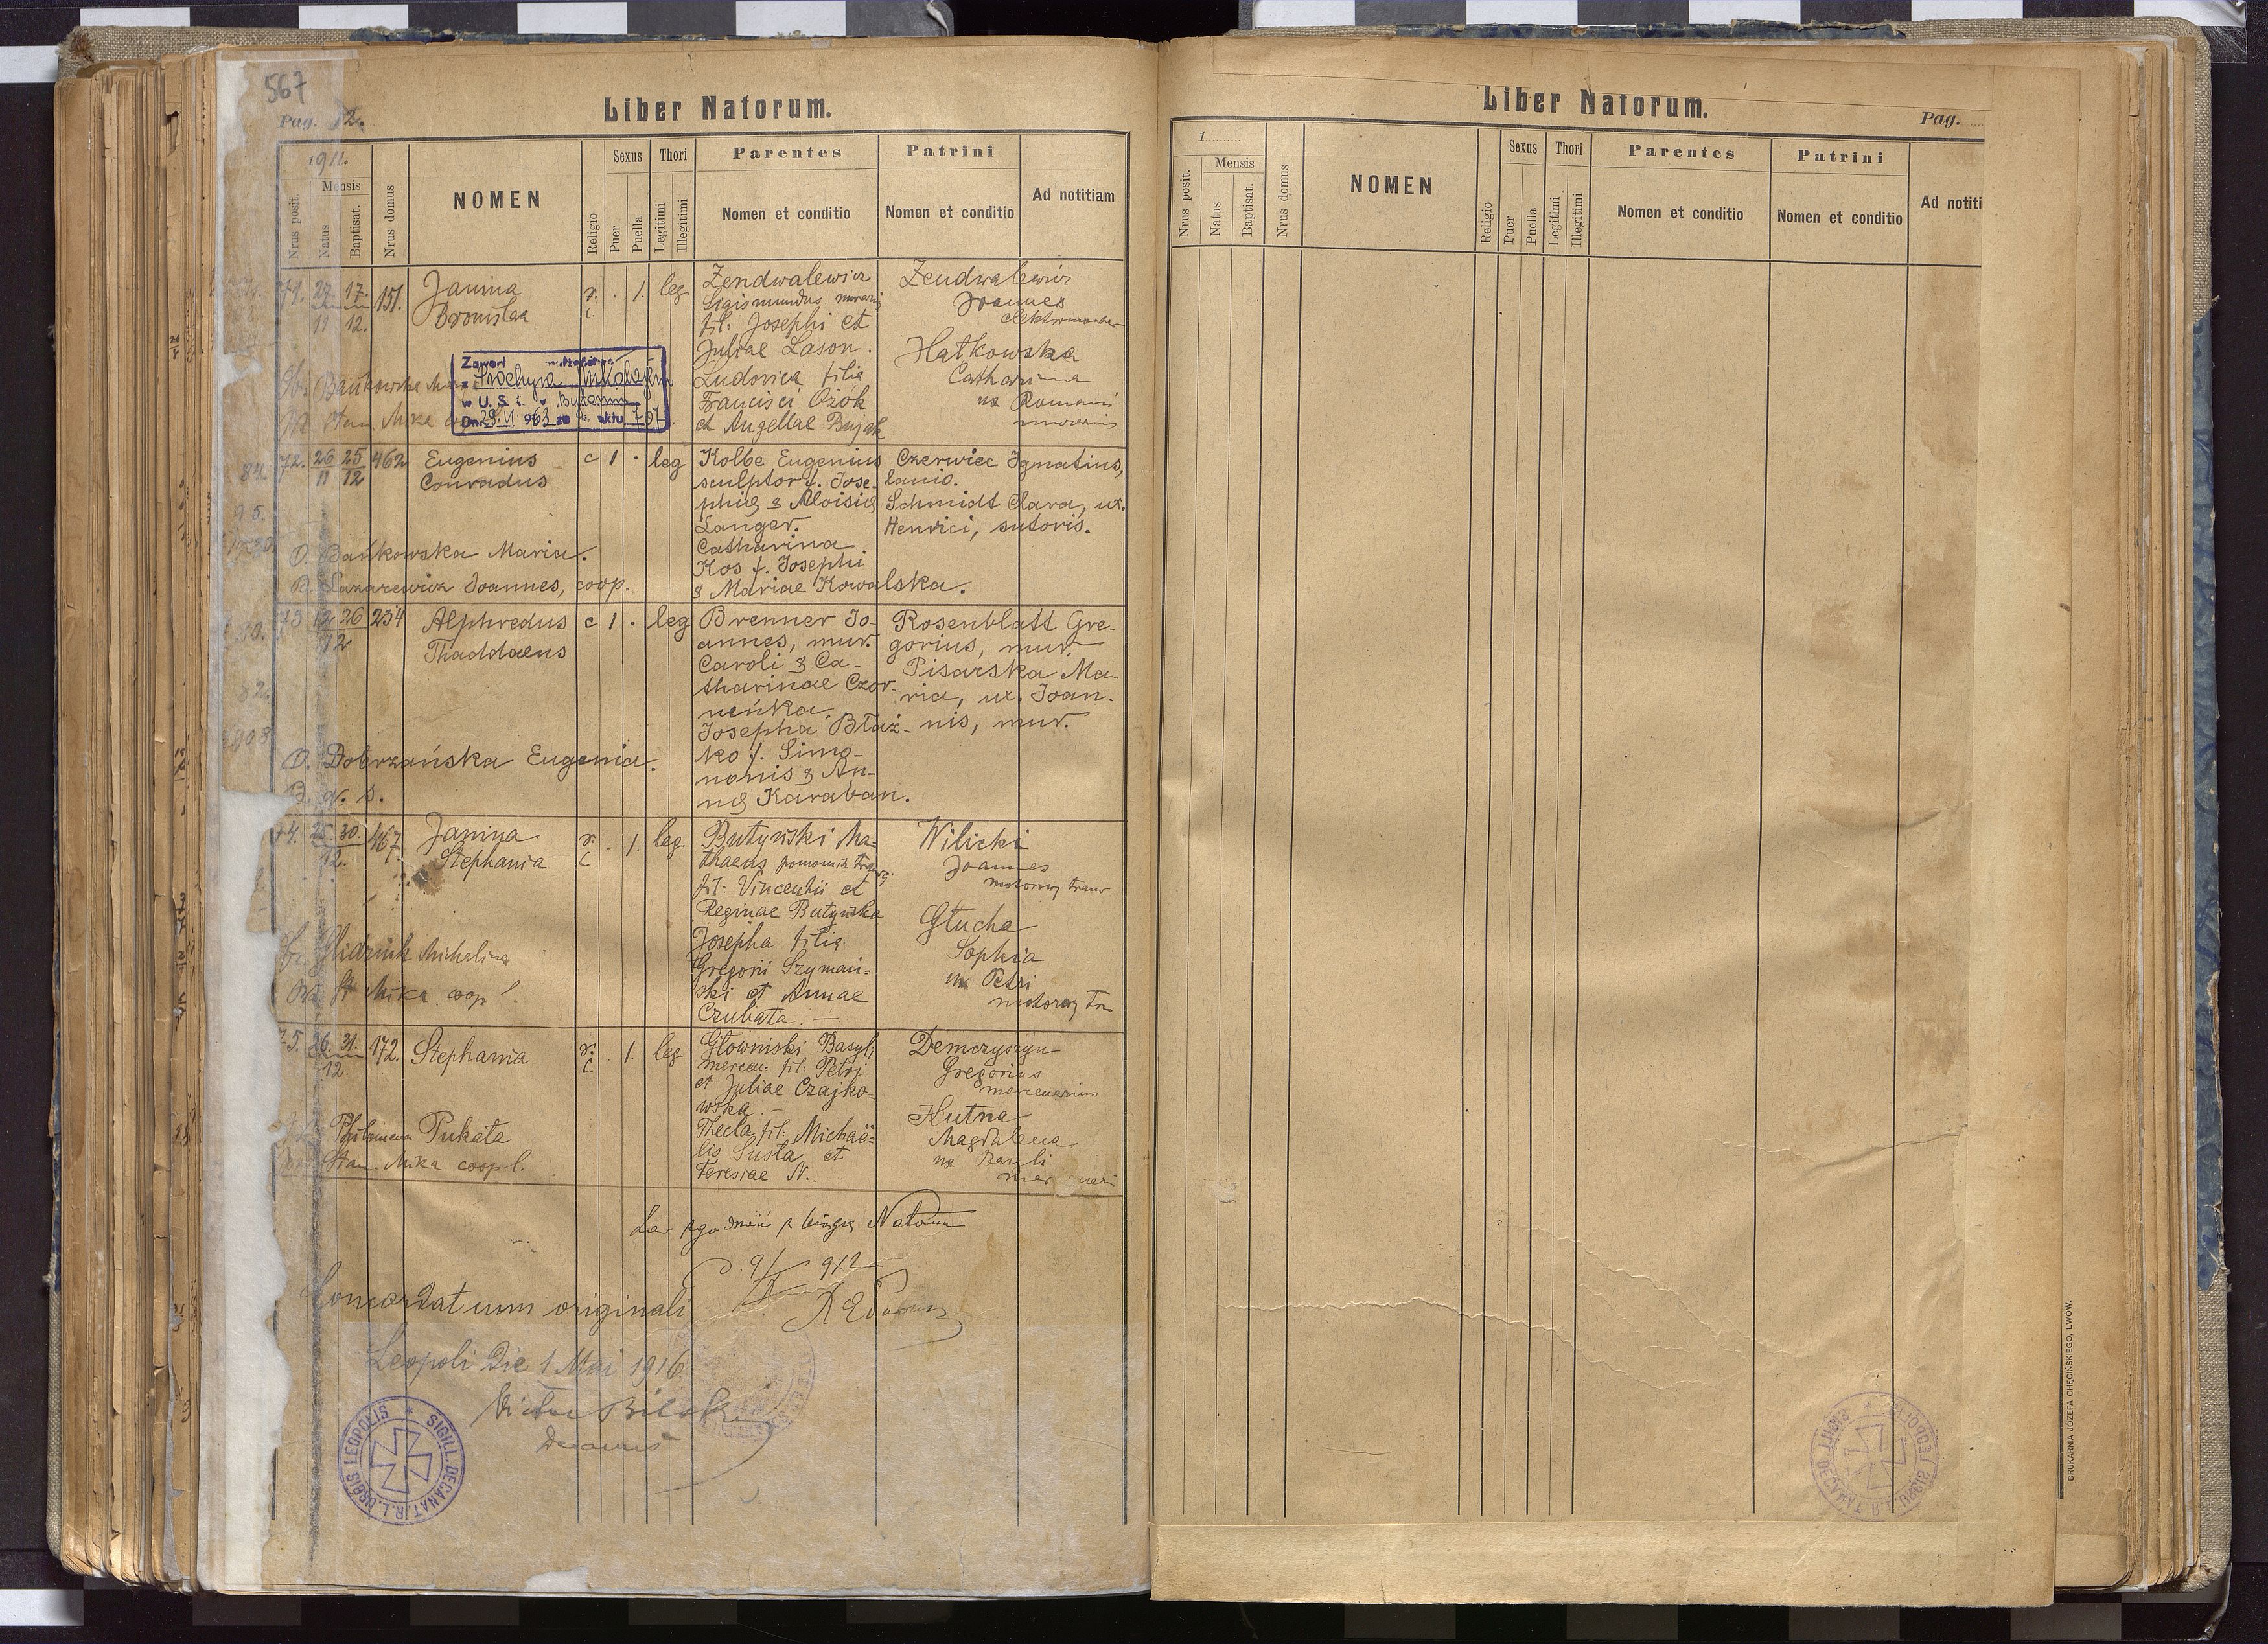 567
Pag. 12.
Liber Natorum.
1911.
Nrus posit.
Mensis
Natus
Baptisat.
Nrus domus
NOMEN
Religio
Sexus
Puer
Puella
Thori
Legitimi
Illegitimi
Parentes
Nomen et conditio
Patrini
Nomen et conditio
Ad notitiam
71. 27. 17. 151.
11 12.
Janina
Bronislaa
r. c. . 1. leg
Zendwalewicz
Sigismundus murarij
fil: Josephi et
Juliae Lason.
Ludovica filia
Francisci Ożók
et Angellae Bujak
Zendwalewicz
Joannes
elektromonter
Hatkowska
Catharina
ux Romani
murarius
Zawarł małżeństwo
z Prochyra Mikołajem
w U. S. C. w Bytomiu
Dn. 29. VI. 963 za Nr. aktu 707
Ob. Bańkowska Maria
Stan. Mika
72. 26 25 462
11 12
Eugenius
Conradus
c 1 . leg
Kolbe Eugenius
sculptor f. Jose-
phi & Aloisię
Langer.
Catharina
Kos f. Josephi
& Mariae Kowalska.
Czerwiec Ignatius,
lanio.
Schmidt Clara, ux.
Henrici, sutoris.
O. Bańkowska Maria.
B. Lazarewicz Joannes, coop.
73 12 26 234
12
Alphredus
Thaddaeus
c 1 . leg
Brenner Jo-
annes, mur.
Caroli & Ca-
tharinae Czor-
neńka.
Josepha Błaż-
ko f. Simo-
nonis & An-
nę Karaban.
Rosenblatt Gre-
gorius, mur.
Pisarska Ma-
ria, ux. Joan-
nis, mur.
O. Dobrzańska Eugenia.
B. q. s.
74. 25. 30. 167.
12.
Janina
Stephania
r. c. . 1. leg
Butyński Ma-
thaeus pomocnik tramw.
fil: Vincentii et
Reginae Butyńska
Josepha filia
Gregorii Szymań=
ski et Annae
Czubata. —
Wilicki
Joannes
motorowy tramw.
Głucha
Sophia
ux Petri
motorowy tr
Michalina
St Mika coop l.
75. 26. 31. 172.
12.
Stephania
r. c. . 1. leg
Głowiński Basyli
mercen: fil: Petrj
et Juliae Czajko=
wska.—
Thecla fil: Michaë=
lis Susta et
Teresiae N..
Demczyszyn
Gregorius
mercenarius
Hutna
Magdalena
ux Pauli
Pukata
Stan. Mika coop l.
Natorum
912
Concordat cum originali
Leopoli die 1 Mai 1916
Victor Bilski
Decanus
SIGILL. DECANAT. R. L. URBIS LEOPOLIS
Liber Natorum.
Pag.
1
Nrus posit.
Mensis
Natus
Baptisat.
Nrus domus
NOMEN
Religio
Sexus
Puer
Puella
Thori
Legitimi
Illegitimi
Parentes
Nomen et conditio
Patrini
Nomen et conditio
Ad notiti
DRUKARNIA JÓZEFA CHĘCIŃSKIEGO, LWÓW.